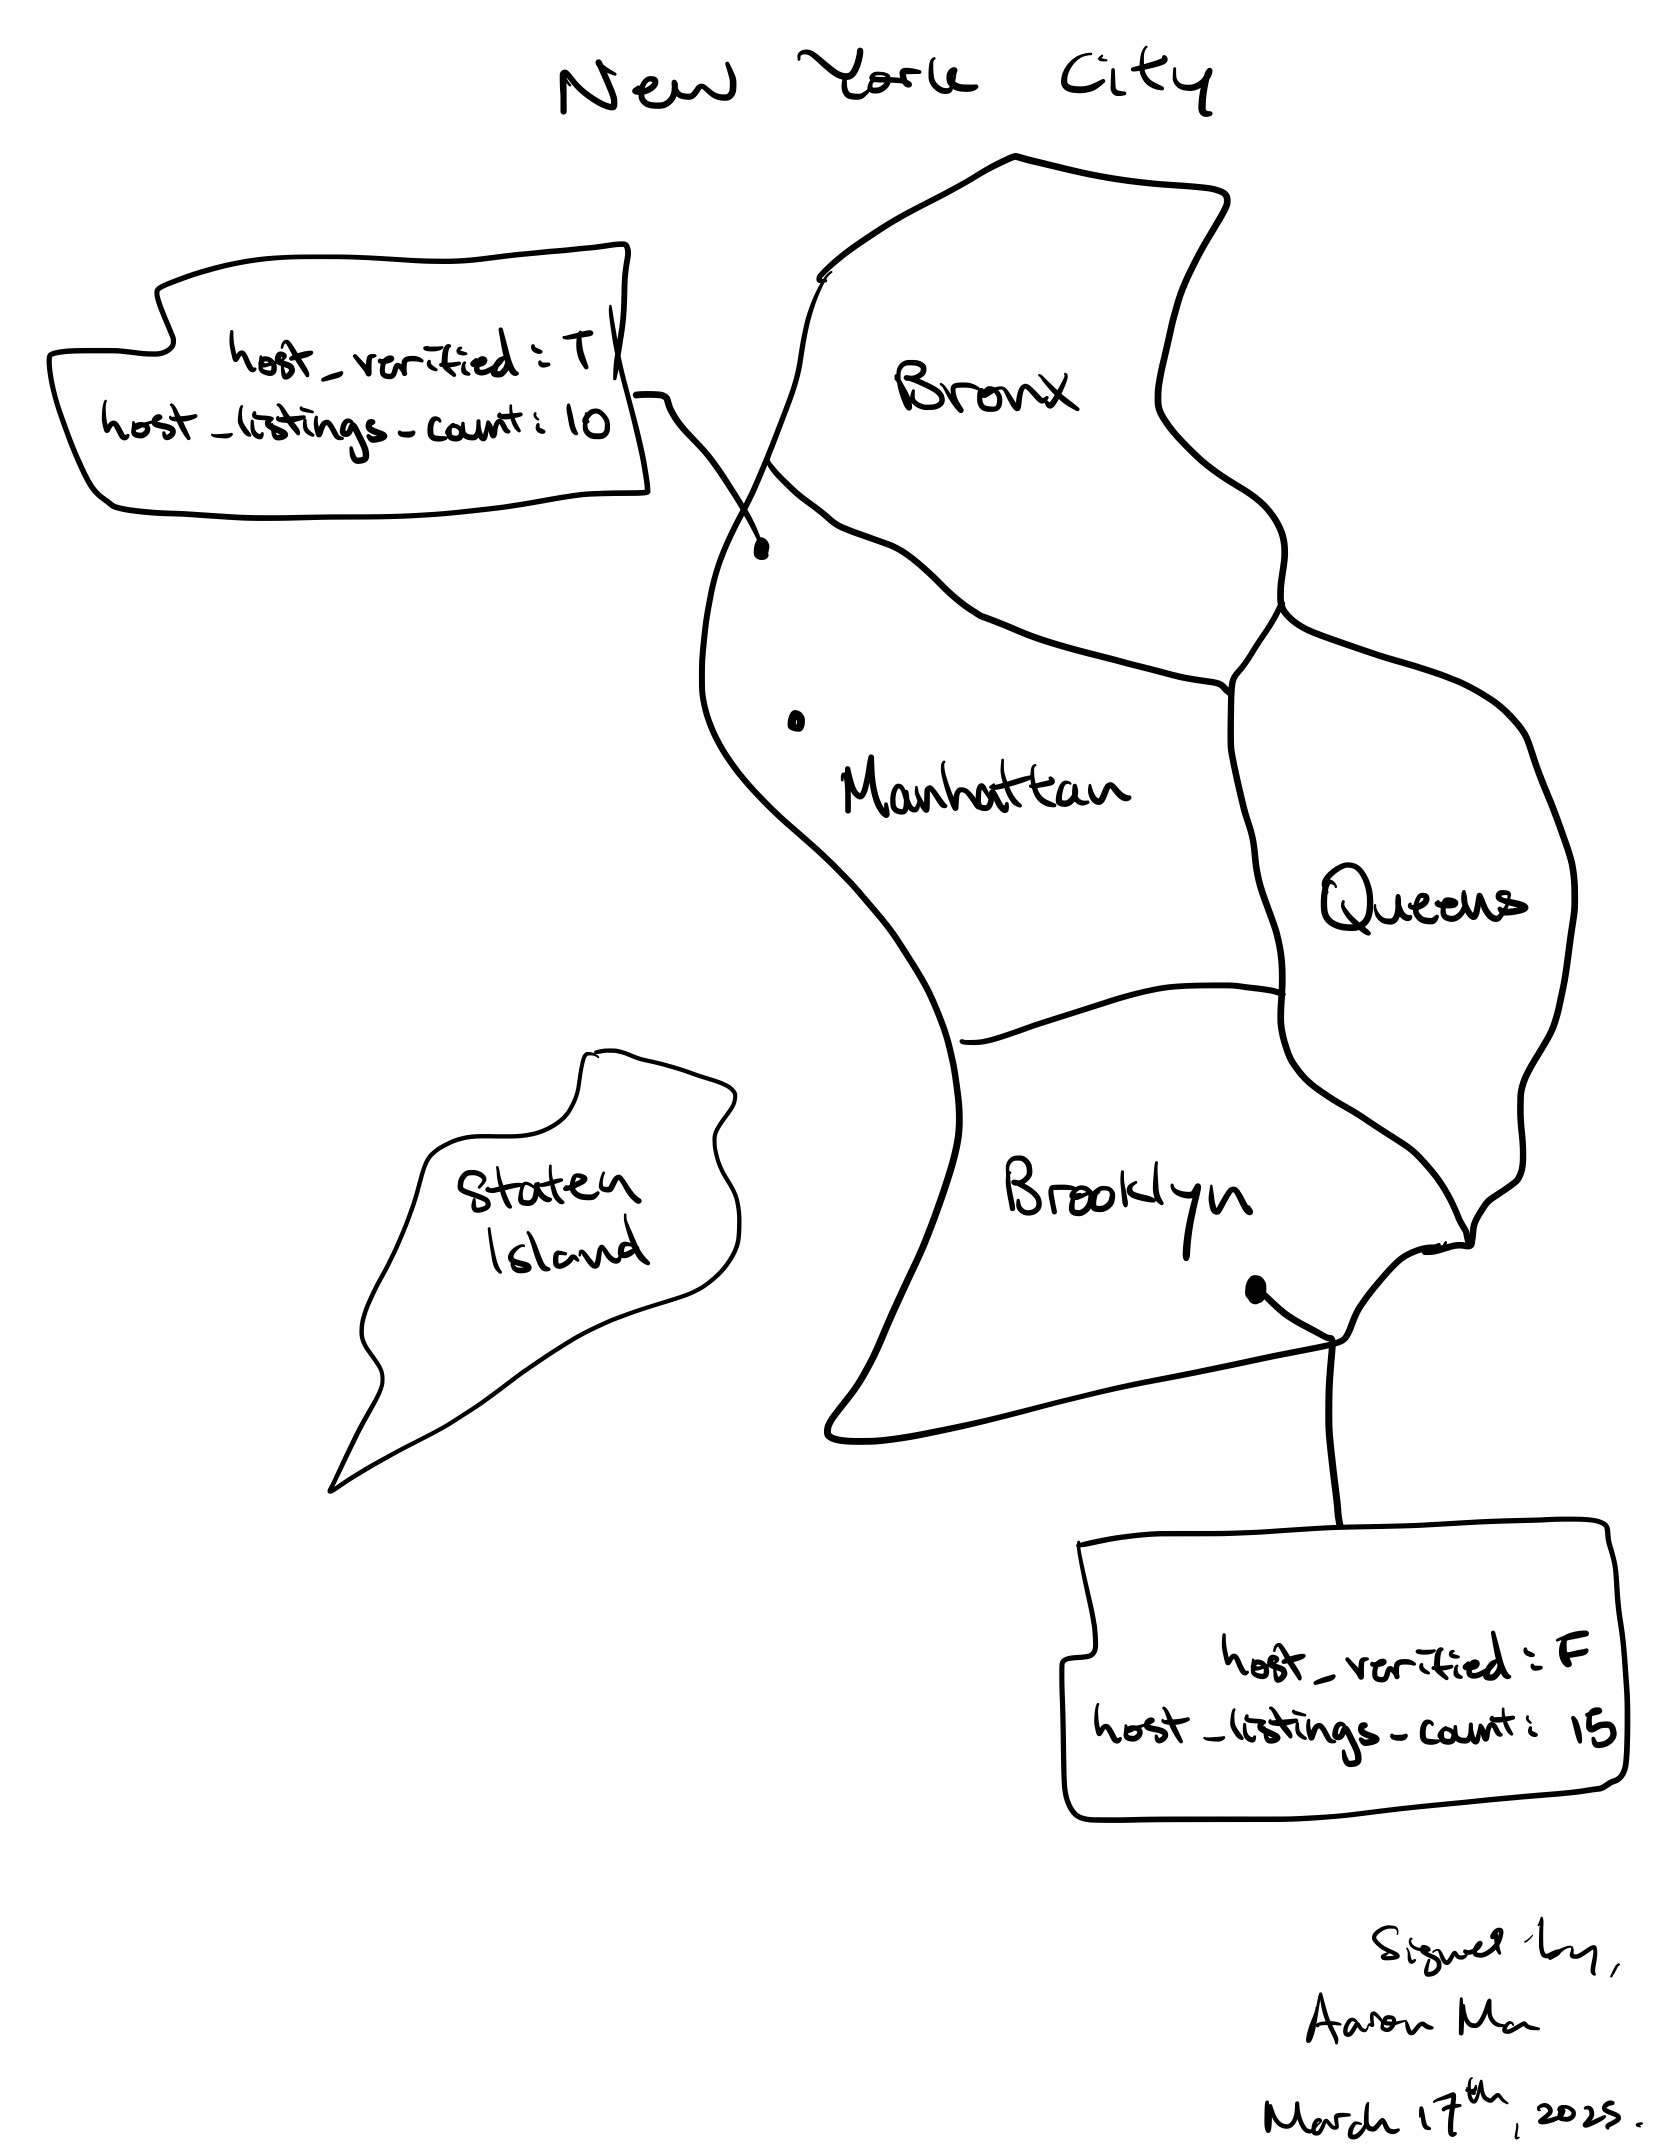 New York City
host_verified: T
host_listings_count: 10
Bronx
Manhattan
Queens
Staten
Island
Brooklyn
host_verified: F
host_listings_count: 15
Signed by,
Aaron Ma
March 17th, 2025.